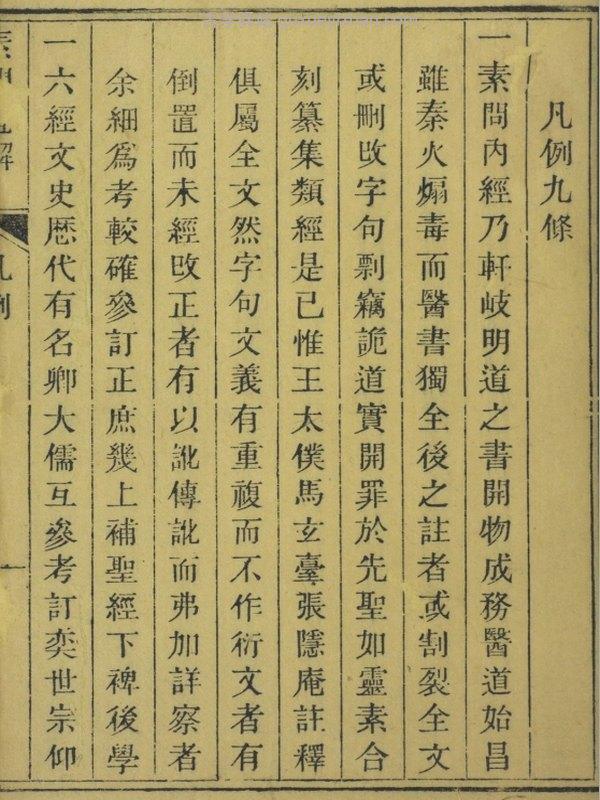 凡例九條
一素問內經乃軒岐明道之書開物成務醫道始昌
雖秦火煽毒而醫書獨全後之註者或割裂全文
或刪改字句剽竊詭道實開罪於先聖如靈素合
刻纂集類經是已惟王太僕馬玄臺張隱庵註釋
俱屬全文然字句文義有重複而不作衍文者有
倒置而未經改正者有以訛傳訛而弗加詳察者
余細爲考較確參訂正庶幾上補聖經下裨後學
一六經文史歴代有名卿大儒互參考訂奕世宗仰
凡例
一